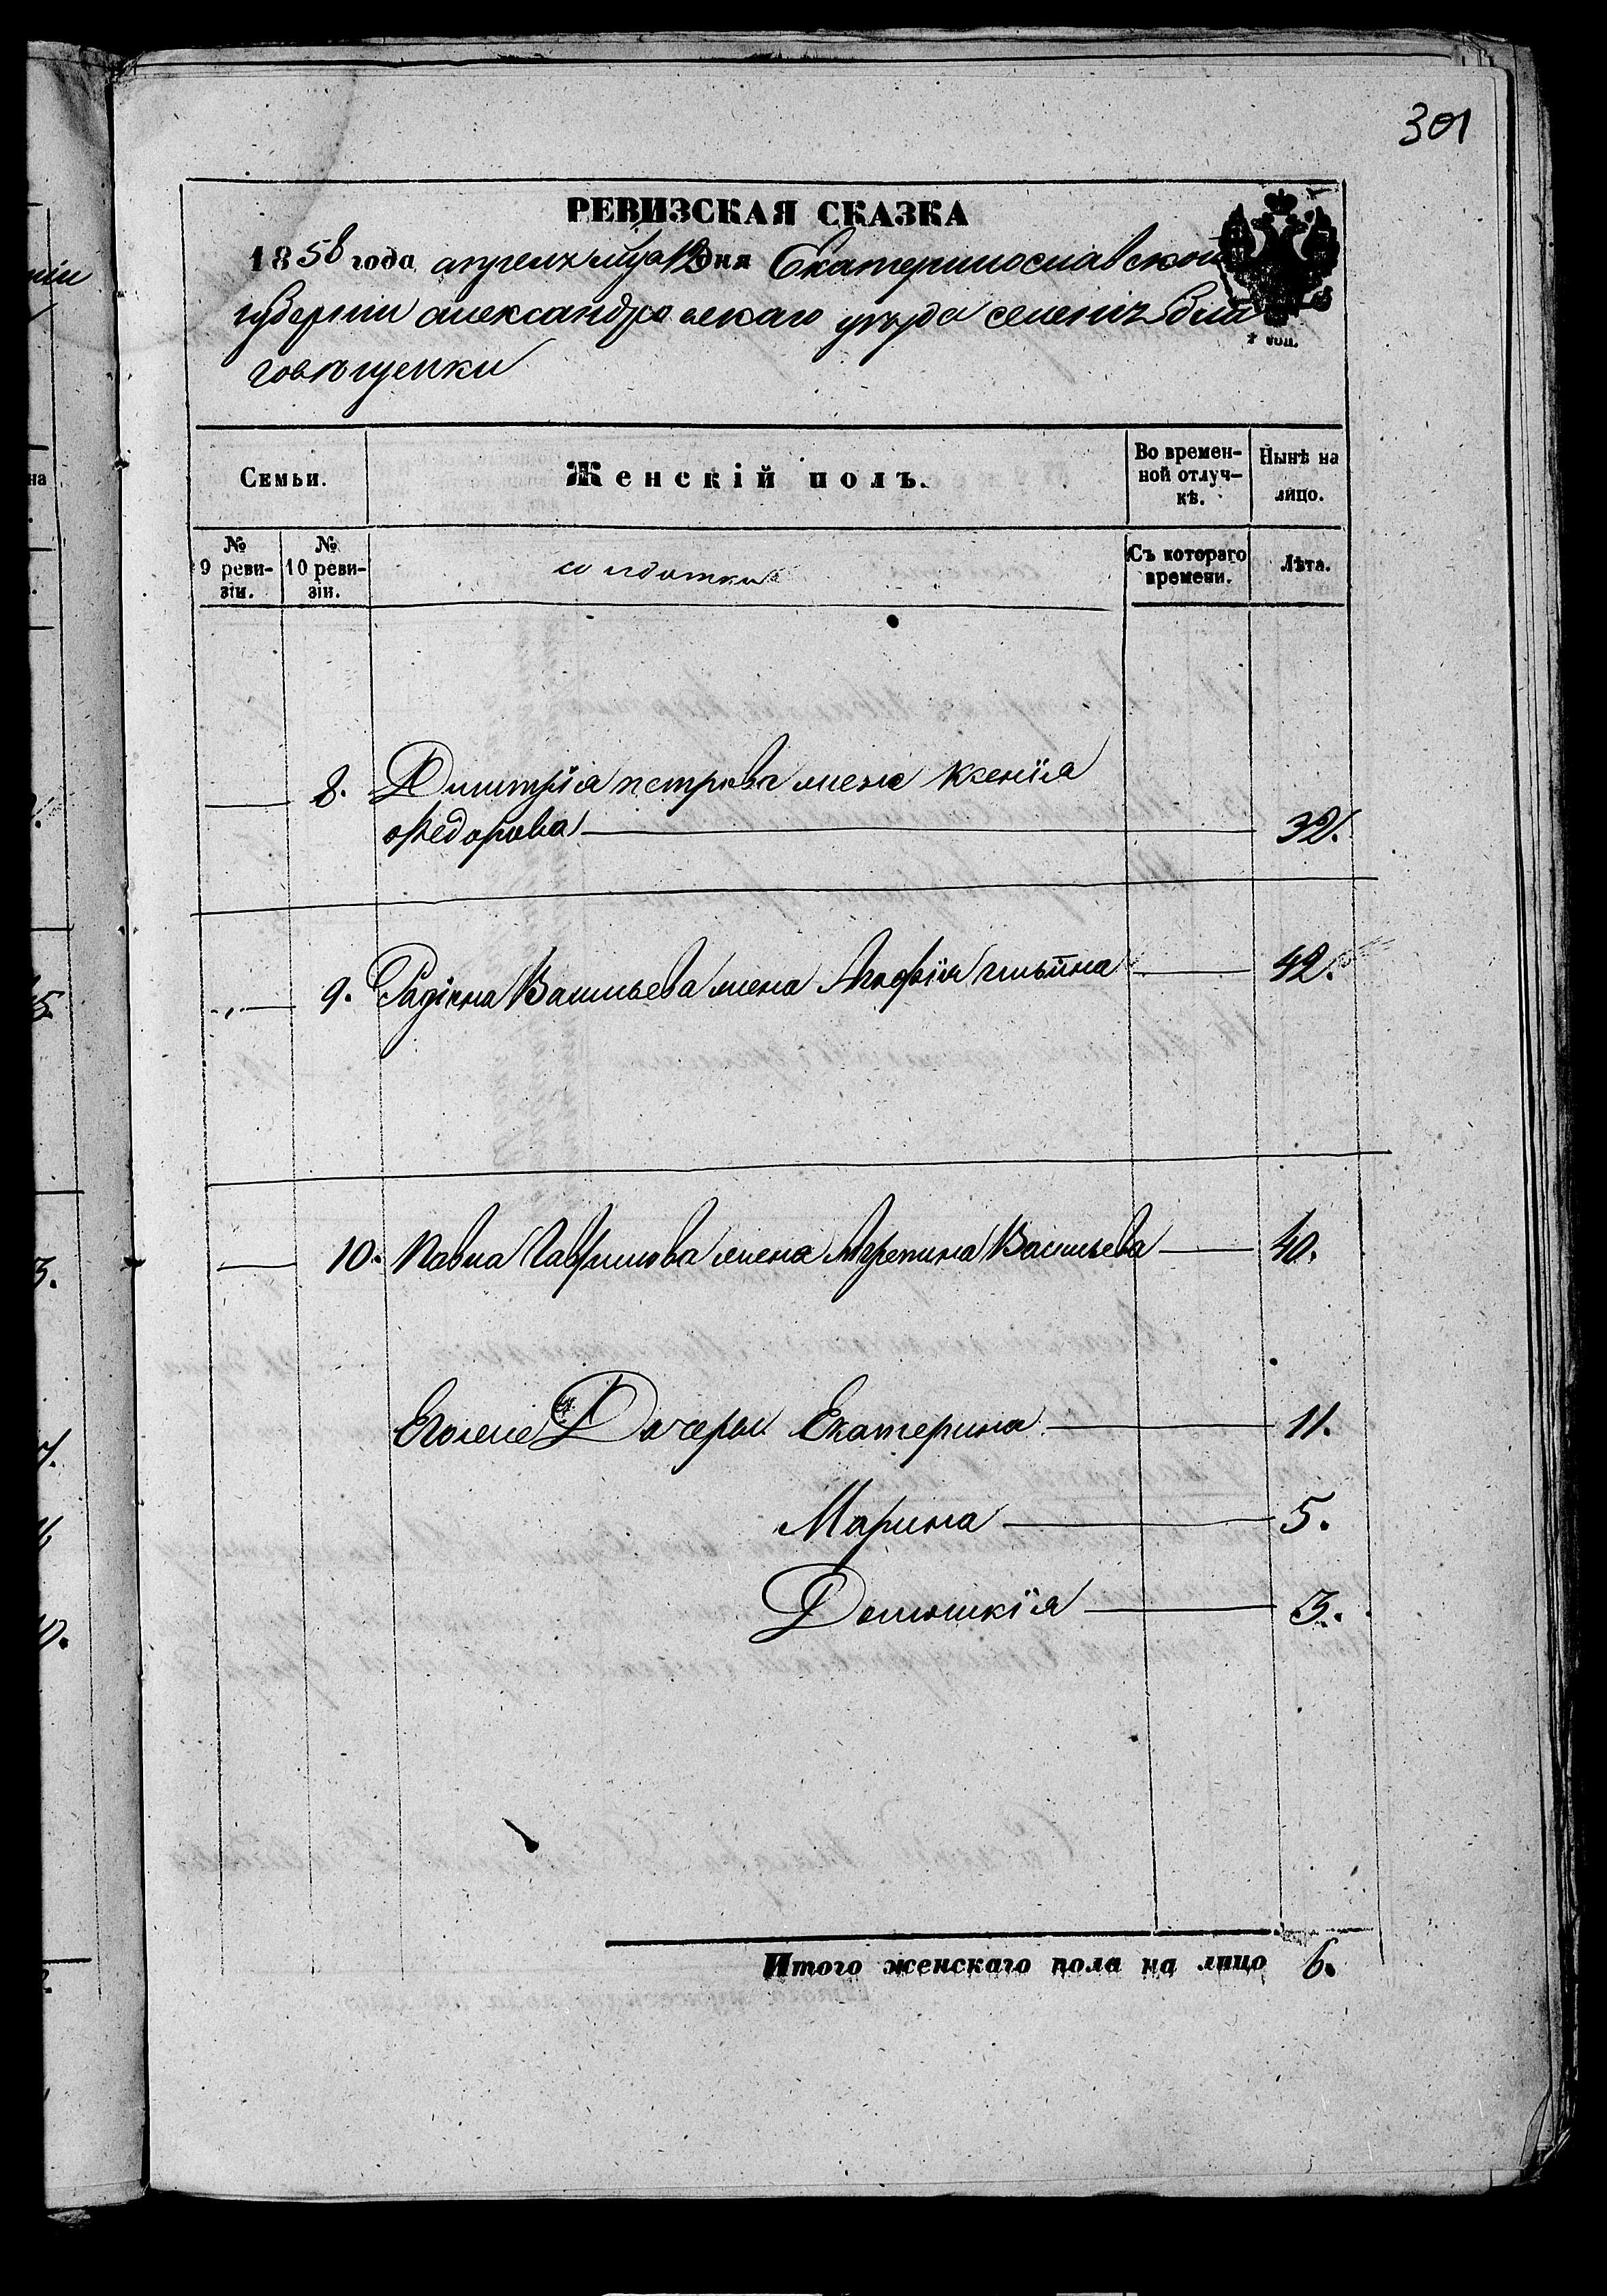 301
РЕВИЗСКАЯ СКАЗКА
1858 года апреля мца 12 дня Екатеринославской
губернии александровскаго уезда селения бла
говещенки
Семьи.
Женскій полъ.
Во времен-
ной отлуч-
кѣ.
Нынѣ на
лицо.
№
9 реви-
зіи.
№
10 реви-
зіи.
солдатки
Съ котораго
времени.
Лѣта.
8. Димитрія петрова жена Ксенія
Федорова 32.
9. Радіона Васильева жена Агафія ильина 42.
10. Павла Гаврилова жена Агрепина Васильева 40.
Его Дочеры Екатерина 11.
Марина 5.
3.
Итого женскаго пола на лицо 6.